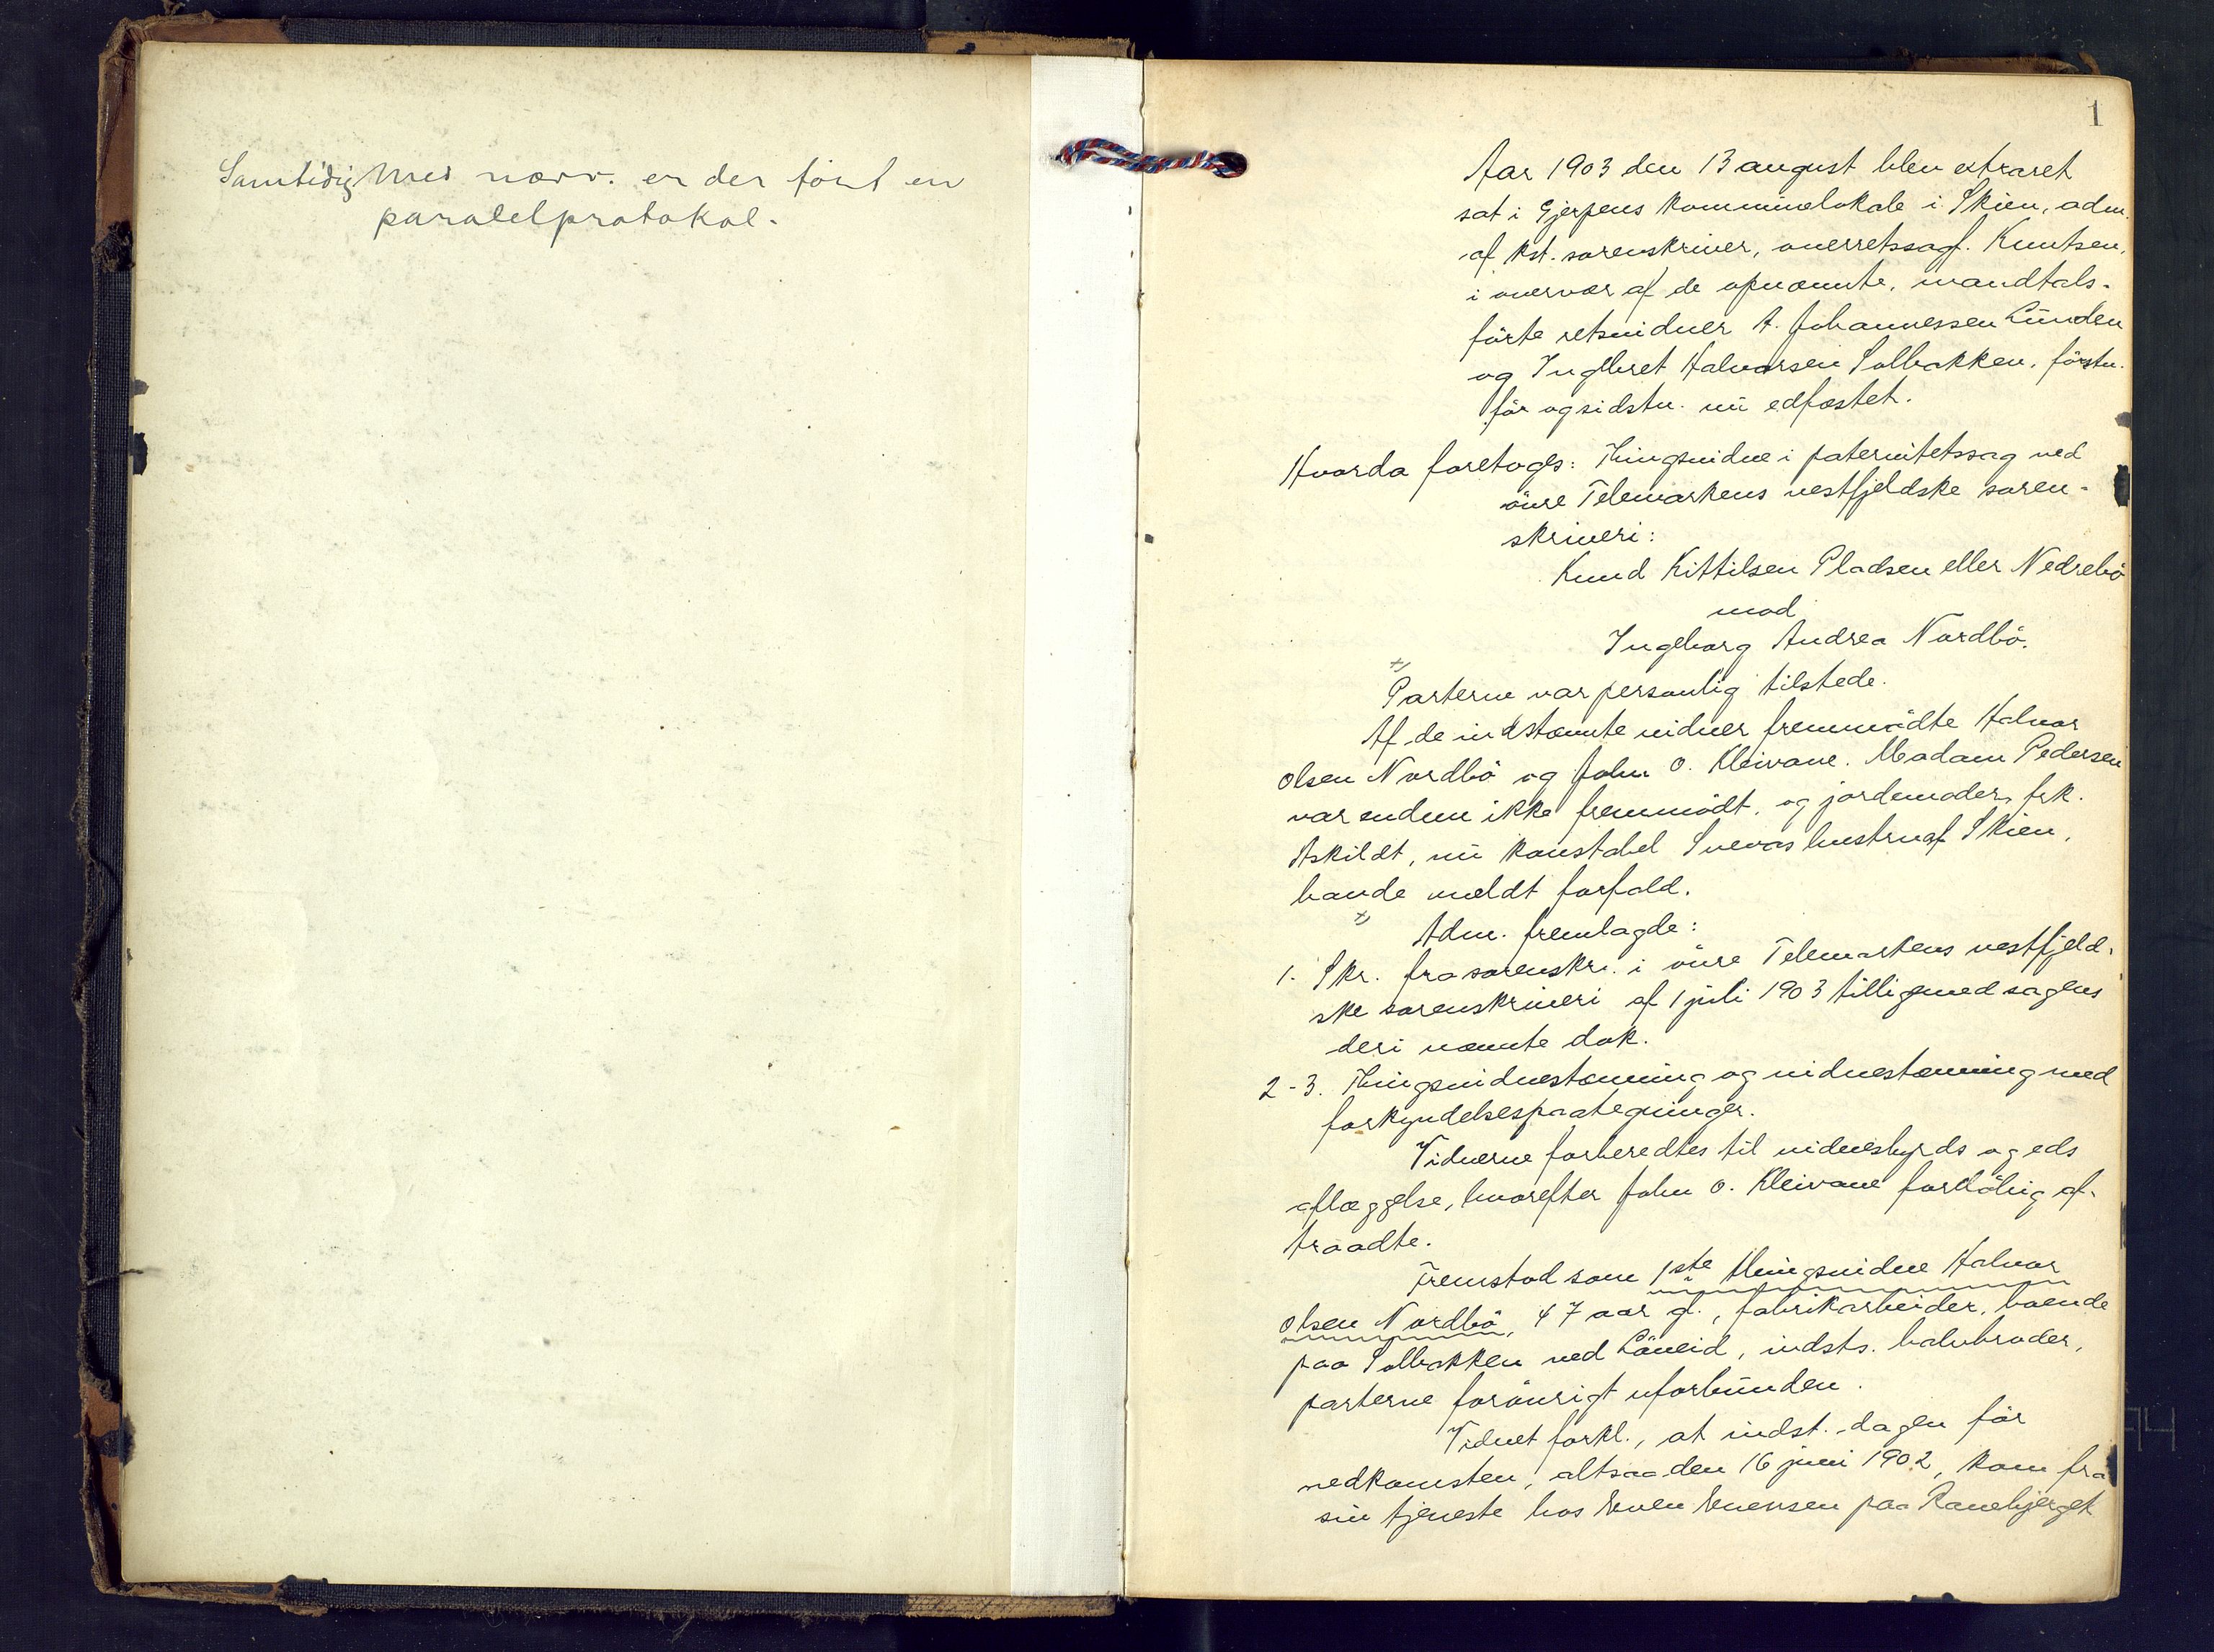 Samtidig med nærv. er der ført en
paralelprotokol.
1
Aar 1903 den 13 august blev extraret
sat i Gjerpens kommunelokale i Skien, adm.
af kst. sorenskriver, overretssagf. Knutsen,
i overvær af de opnævnte, mandtals-
førte retsvidner A. Johannessen Lunden
og Ingebret Halvorsen Solbakken, førstn.
før og sidstn. nu edfæstet.
Hvorda foretoges: Thingsvidne i paternitetssag ved
øvre Telemarkens vestfjeldske soren-
skriveri:
Knud Kittilsen Pladsen eller Nedrebø
mod
Ingeborg Andrea Nordbø.
x)
Parterne var personlig tilstede.
Af de indstævnte vidner fremmødte Halvor
Olsen Nordbø og John O. Kleivane. Madam Pedersen
var endnu ikke fremmødt, og jordemoder frk.
Askildt, nu konstabel hustru af Skien,
havde meldt forfald.
x)
Adm. fremlagde:
1. Skr. fra sorenskr. i øvre Telemarkens vestfjeld-
ske sorenskriveri af 1 juli 1903 tilligemed sagens
deri nævnte dok.
2-3. Thingsvidnestævning og vidnestævning med
forkyndelsespaategninger.
Vidnerne forberedtes til vidnesbyrds og eds
aflæggelse, hvorefter John O. Kleivane forløbig af-
traadte.
Fremstod som 1ste thingsvidne Halvor
Olsen Nordbø, 47 aar gl., fabrikarbeider, boende
paa Solbakken ved Løveid, indsts. halvbroder,
parterne forøvrigt uforbunden.
Vidnet forkl., at indst. dagen før
nedkomsten, altsaa den 16 juni 1902, kom fra
sin tjeneste hos Even Evensen paa Ravnbjerget